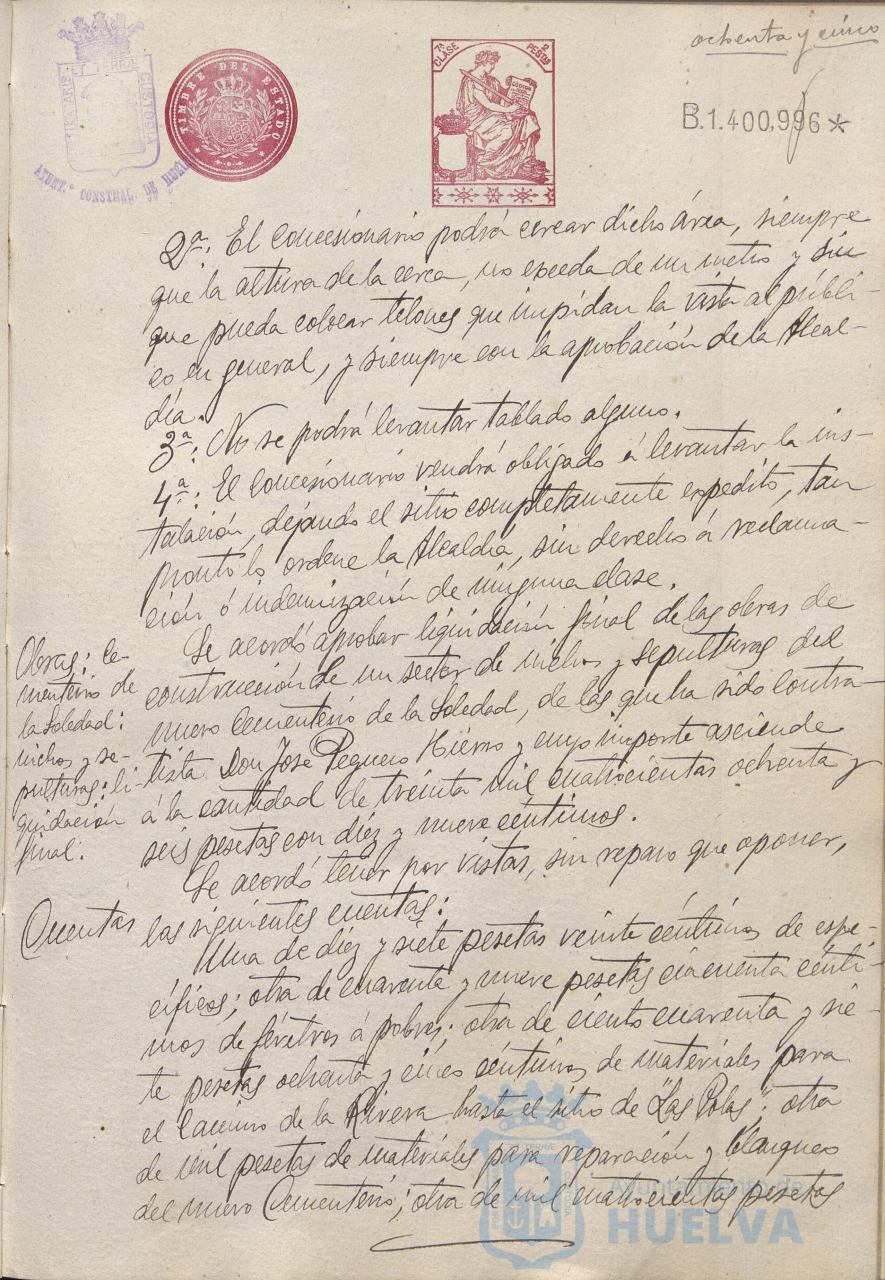 ochenta y cinco
TIMBRE DEL ESTADO
7ª CLASE
2 PESTAS
B.1.400,996*
AYUNT.º CONSTNAL. DE HUELVA
2ª: El concesionario podrá cercar dicho área, siempre
que la altura de la cerca, no exceda de un metro y sin
que pueda colocar telones que impidan la vista al públi-
co en general, y siempre con la aprobación de la Alcal-
día.
3ª: No se podrá levantar tablado alguno.
4ª: El concesionario vendrá obligado á levantar la ins-
talación, dejando el sitio completamente expedito, tan
pronto lo ordene la Alcaldía, sin derecho á reclama-
ción ó indemnización de ninguna clase.
Obras: Ce-
menterio de
la Soledad:
nichos y se-
pulturas: li-
quidación
final.
Se acordó aprobar liquidación final de las obras de
construcción de un sector de nichos y sepulturas del
nuevo Cementerio de la Soledad, de las que ha sido contra-
tista Don José Peguero Hierro y cuyo importe asciende
á la cantidad de treinta mil cuatrocientas ochenta y
seis pesetas con diez y nueve céntimos.
Cuentas
Se acordó tener por vistas, sin reparo que oponer,
las siguientes cuentas:
Una de diez y siete pesetas veinte céntimos de espe-
cíficos; otra de cuarenta y nueve pesetas cincuenta cénti-
mos de féretros á pobres; otra de ciento cuarenta y sie-
te pesetas ochenta y cinco céntimos de materiales para
el Camino de la Rivera hasta el sitio de "Las Polas"; otra
de mil pesetas de materiales para reparación y blanqueo
del nuevo Cementerio; otra de mil cuatrocientas pesetas
Ayuntamiento de
HUELVA